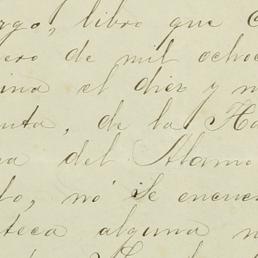 rgo, libro que C
ero de mil ochoc
ina el diez y n
nta, de la Ha
a del Alamo
to, no se encue
teca alguna n